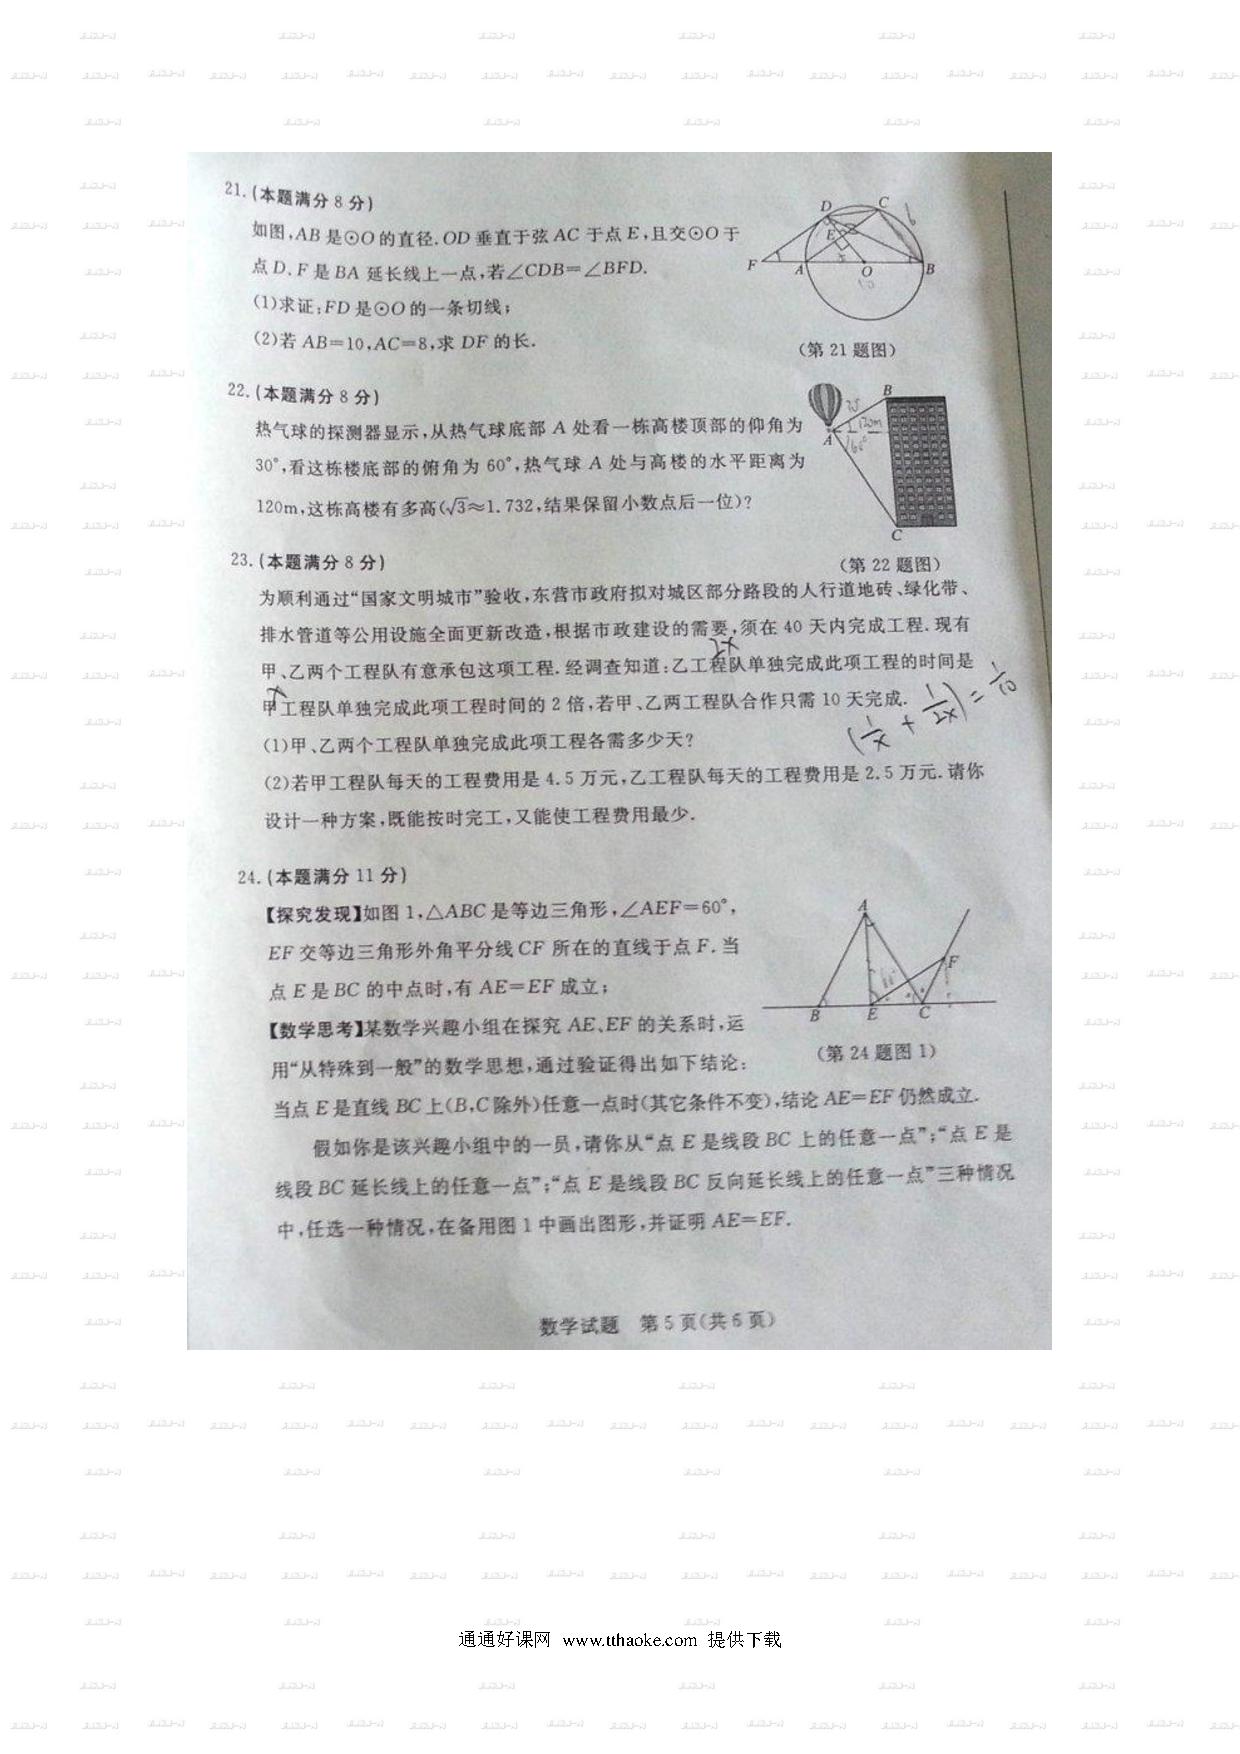 21.(本题满分8分)
如图,AB是⊙O的直径.OD垂直于弦AC于点E,且交⊙O于
点D.F是BA延长线上一点,若∠CDB=∠BFD.
(1)求证:FD是⊙O的一条切线;
(2)若AB=10,AC=8,求DF的长.
D
C
6
E
F
A
O
B
10
(第21题图)
22.(本题满分8分)
热气球的探测器显示,从热气球底部A处看一栋高楼顶部的仰角为
30°,看这栋楼底部的俯角为60°,热气球A处与高楼的水平距离为
120m,这栋高楼有多高(√3≈1.732,结果保留小数点后一位)?
B
120m
A
60°
C
(第22题图)
23.(本题满分8分)
为顺利通过“国家文明城市”验收,东营市政府拟对城区部分路段的人行道地砖、绿化带、
排水管道等公用设施全面更新改造,根据市政建设的需要,须在40天内完成工程.现有
2x
甲、乙两个工程队有意承包这项工程.经调查知道:乙工程队单独完成此项工程的时间是
x
甲工程队单独完成此项工程时间的2倍,若甲、乙两工程队合作只需10天完成.
(1/x + 1/2x) = 1/10
(1)甲、乙两个工程队单独完成此项工程各需多少天?
(2)若甲工程队每天的工程费用是4.5万元,乙工程队每天的工程费用是2.5万元.请你
设计一种方案,既能按时完工,又能使工程费用最少.
24.(本题满分11分)
【探究发现】如图1,△ABC是等边三角形,∠AEF=60°,
EF交等边三角形外角平分线CF所在的直线于点F.当
点E是BC的中点时,有AE=EF成立;
【数学思考】某数学兴趣小组在探究AE、EF的关系时,运
用“从特殊到一般”的数学思想,通过验证得出如下结论:
当点E是直线BC上(B,C除外)任意一点时(其它条件不变),结论AE=EF仍然成立.
假如你是该兴趣小组中的一员,请你从“点E是线段BC上的任意一点”;“点E是
线段BC延长线上的任意一点”;“点E是线段BC反向延长线上的任意一点”三种情况
中,任选一种情况,在备用图1中画出图形,并证明AE=EF.
A
F
B
E
C
(第24题图1)
数学试题 第5页(共6页)
通通好课网 www.tthaoke.com 提供下载